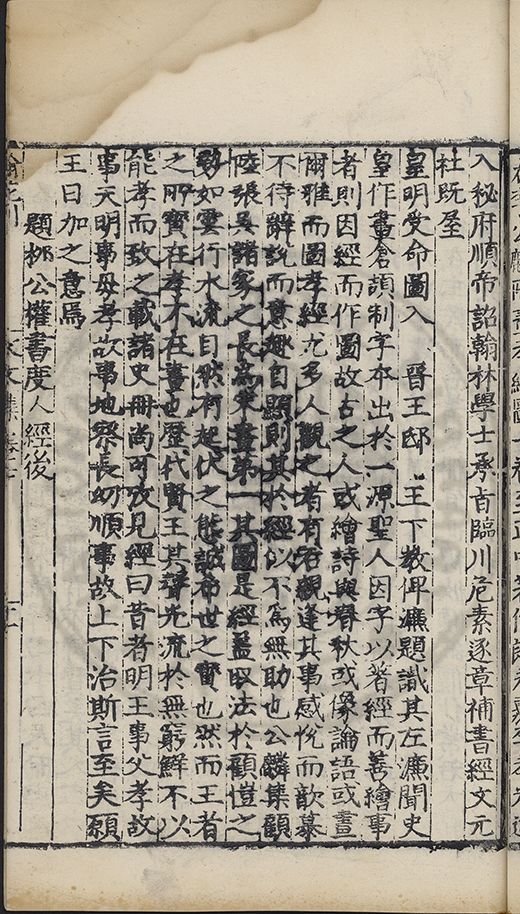 入秘府順帝詔翰林學士承旨臨川危素逐章補書經文元
社既屋
皇明受命圖入　晉王邸　王下教俾濂題識其左濂聞史
皇作畫倉頡制字本出於一源聖人因字以著經而善繪事
者則因經而作圖故古之人或繪詩與春秋或像論語或畫
爾雅而圖孝經尤多人觀之者有容觀逢其事感悅而歆慕
不待辭說而意趣自顯則其於經似不為無助也公麟集顧
陸張吳諸家之長為宋畫第一其圖是經蓋取法於顧愷之
勢如雲行水流自然有起伏之態誠希世之寶也然而王者
之所寶在孝不在畫也歷代賢王其聲光流於無窮鮮不以
能孝而致之載諸史冊尚可攷見經曰昔者明王事父孝故
事天明事母孝故事地察長幼順事故上下治斯言至矣願
王日加之意焉
題柳公權書度人經後